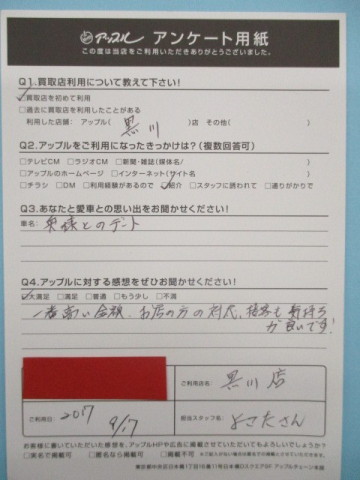 アップル アンケート用紙
この度は当店をご利用いただきありがとうございました。
Q1.買取店利用について教えて下さい!
☑買取店を初めて利用
□過去に買取店を利用したことがある
利用した店舗: アップル( 黒川 )店 その他( )
Q2.アップルをご利用になったきっかけは?(複数回答可)
□テレビCM □ラジオCM □新聞・雑誌(媒体名/ )
□アップルのホームページ □インターネット(サイト名 )
□チラシ □DM □利用経験があるので ☑紹介 □スタッフに誘われて □通りがかりで
Q3.あなたと愛車との思い出をお聞かせください!
車名: 奥様とのデート
Q4.アップルに対する感想をぜひお聞かせください!
☑大満足 □満足 □普通 □もう少し □不満
一番高い金額、お店の方の対応、接客も気持ち
が良いです!
ご利用店名: 黒川店
ご利用日: 2017 9/17
担当スタッフ名: よこたさん
お客様に書いていただいた感想を、アップルHPや広告に掲載させていただいてもよろしいでしょうか?
□実名で掲載可 □匿名なら掲載可 □掲載不可
東京都中央区日本橋1丁目18番11号日本橋ロスドエア5F アップルチェーン本部